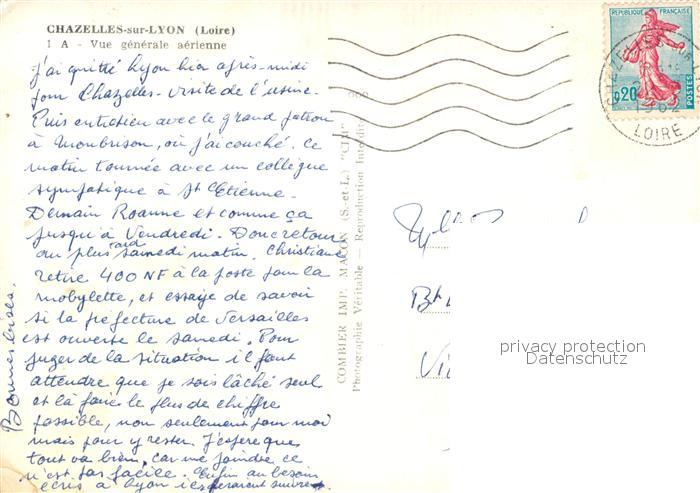 CHAZELLES-sur-LYON (Loire)
1 A - Vue générale aérienne
J'ai quitté Lyon hier après-midi
pour Chazelles - visite de l'usine.
Puis entretien avec le grand patron
à Montbrison, où j'ai couché. Ce
matin tournée avec un collègue
sympatique à St Etienne.
Demain Roanne et comme ça
jusqu'à Vendredi. Donc retour
au plus tard samedi matin. Christiane
retire 400 NF à la poste pour la
mobylette, et essaye de savoir
si la préfecture de Versailles
est ouverte le samedi. Pour
juger de la situation il faut
attendre que je sois lâché seul
et là faire le plus de chiffre
possible, non seulement pour moi
mais pour y rester. J'espère que
tout va bien, car me joindre ce
n'est pas facile. Enfin au besoin
écris à Lyon
Bonnes bises.
COMBIER IMP. MACON (S.-et-L.) "CIM"
Photographie Véritable - Reproduction Interdite
REPUBLIQUE FRANÇAISE
0,20
POSTES
1962
LOIRE
Bt
privacy protection
Datenschutz